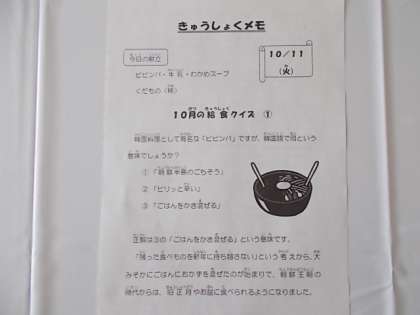 きゅうしょくメモ
今日の献立
10/11
(火)
ビビンバ・牛乳・わかめスープ
くだもの(柿)
10月の給食クイズ ①
韓国料理として有名な「ビビンバ」ですが、韓国語で何という
意味でしょうか?
① 「朝鮮半島のごちそう」
② 「ピリッと辛い」
③ 「ごはんをかき混ぜる」
正解は③の「ごはんをかき混ぜる」という意味です。
「残った食べものを新年に持ち越さない」という考えから、大
みそかにごはんにおかずを混ぜたのが始まりで、朝鮮王朝の
時代からは、旧正月やお盆に食べられるようになりました。